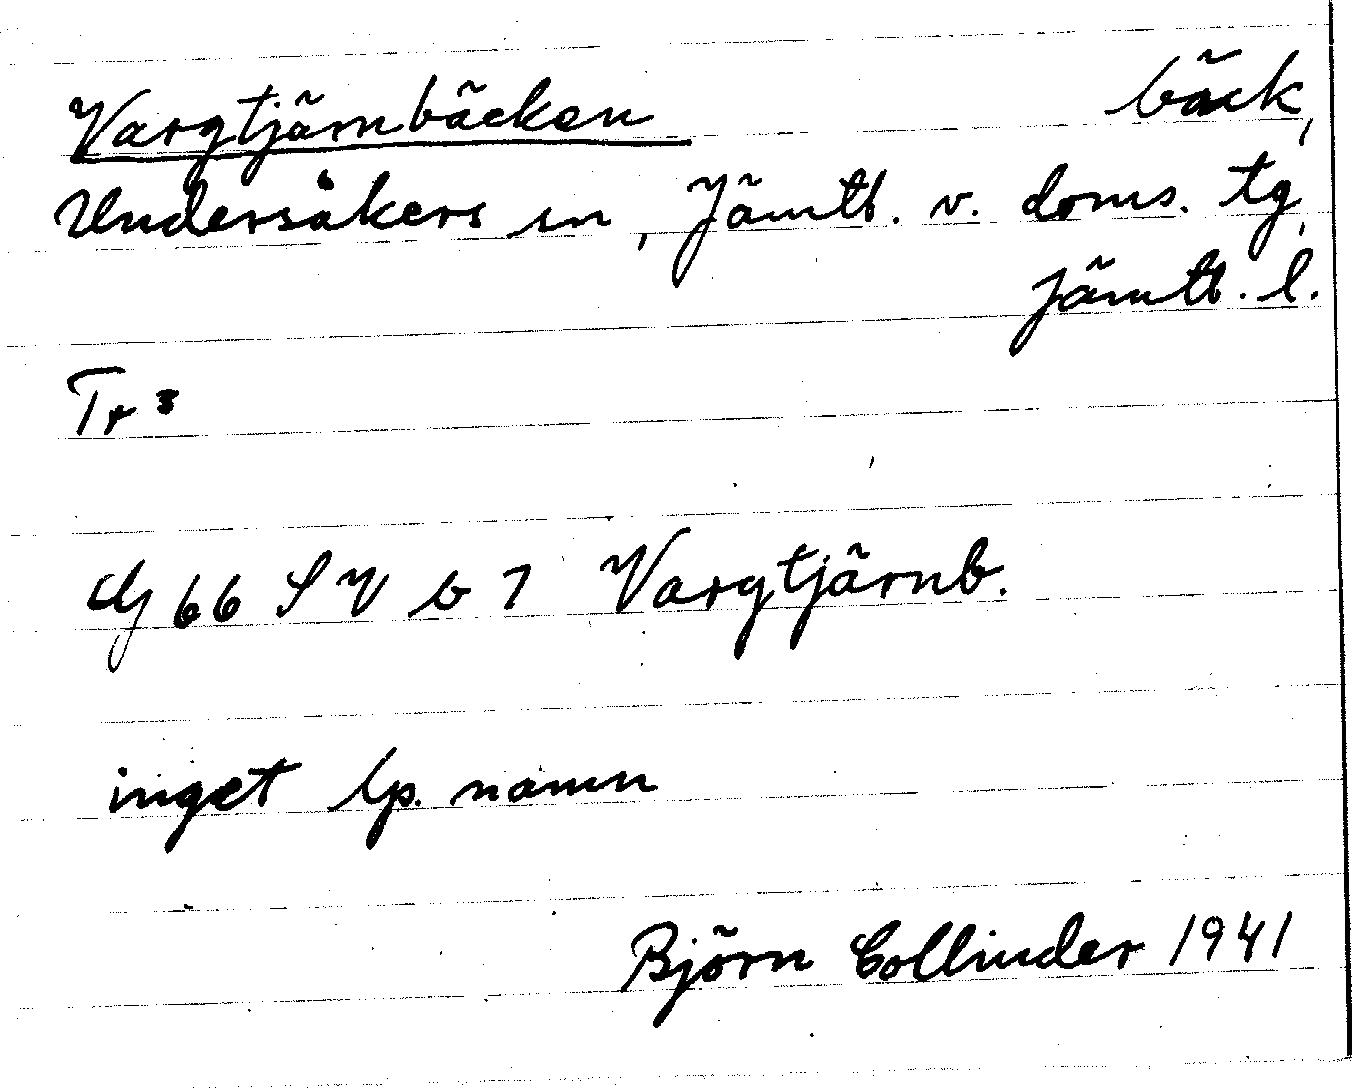 Vargtjärnbäcken bäck,
Undersåkers sn, Jämtl. v. doms. tg,
Jämtl. l.
Tr 3
G 66 SV b 7 Vargtjärnb.
inget lp. namn
Björn Collinder 1941